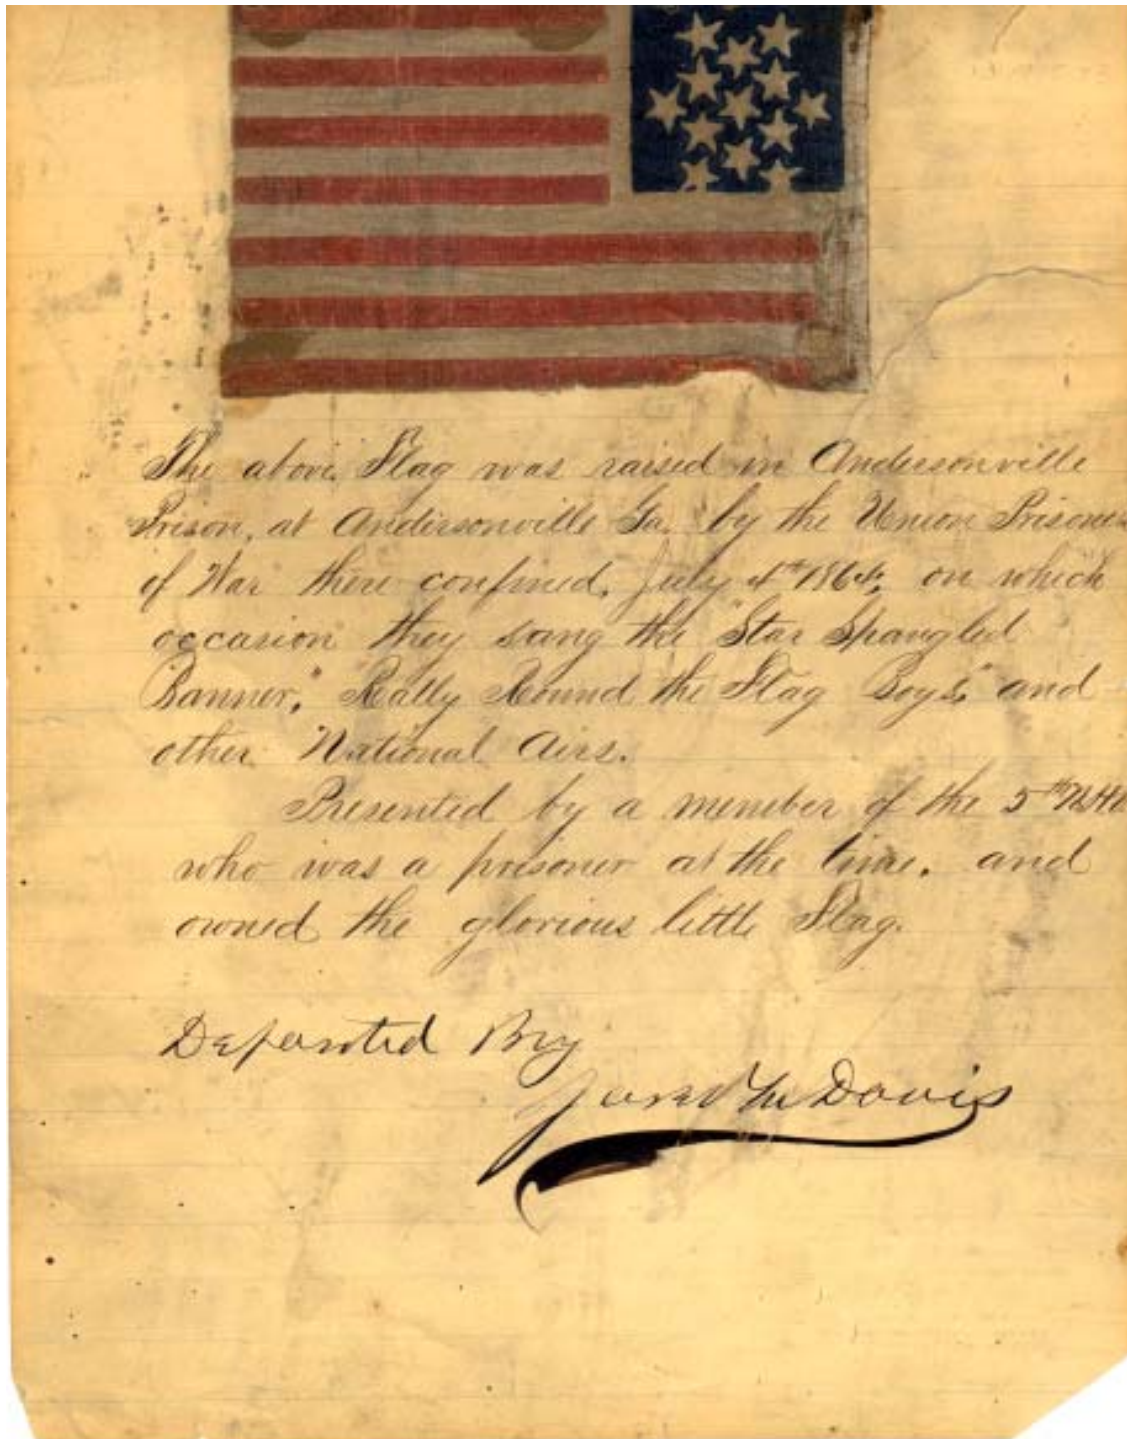 The above Flag was raised in Andersonville
Prison, at Andersonville Ga. by the Union Prisoners
of War there confined, July 4th 1864, on which
occasion they sang the "Star Spangled
Banner," Rally Round the Flag Boys," and
other National Airs.
Presented by a member of the 5th
who was a prisoner at the time, and
owned the glorious little Flag.
Deposited By
Davis